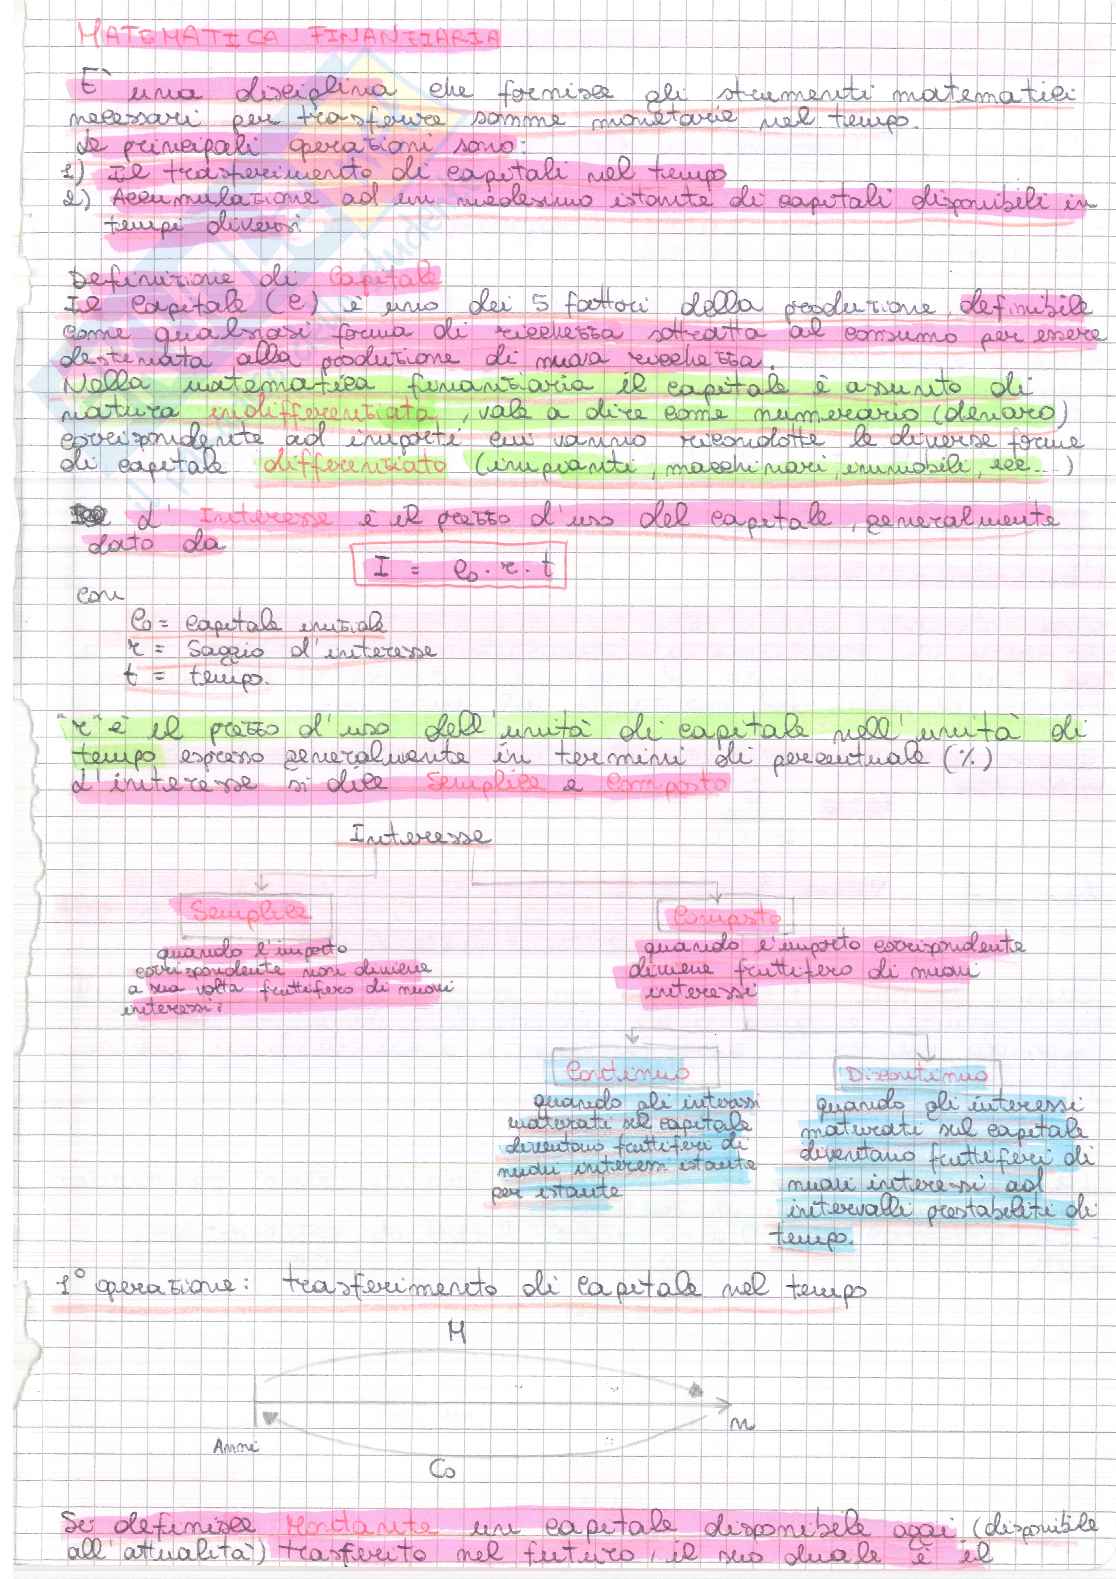 MATEMATICA FINANZIARIA
E' una disciplina che fornisce gli strumenti matematici
necessari per trasferire somme monetarie nel tempo.
Le principali operazioni sono:
1) Il trasferimento di capitali nel tempo
2) Accumulazione ad un medesimo istante di capitali disponibili in
tempi diversi
Definizione di Capitale
Il capitale (C) è uno dei 5 fattori della produzione, definibile
come qualsiasi forma di ricchezza sottratta al consumo per essere
destinata alla produzione di nuova ricchezza.
Nella matematica finanziaria il capitale è assunto di
natura indifferenziata, vale a dire come numerario (denaro)
corrispondente ad importi cui vanno ricondotte le diverse forme
di capitale differenziato (impianti, macchinari, immobili, ecc...)
L'Interesse è il prezzo d'uso del capitale, generalmente
dato da
I = C₀ · r · t
con
C₀ = capitale iniziale
r = Saggio d'interesse
t = tempo.
"r" è il prezzo d'uso dell'unità di capitale nell'unità di
tempo espresso generalmente in termini di percentuale (%)
L'interesse si dice Semplice e Composto
Interesse
Semplice
quando l'importo
corrispondente non diviene
a sua volta fruttifero di nuovi
interessi:
Composto
quando l'importo corrispondente
diviene fruttifero di nuovi
interessi
Continuo
quando gli interessi
maturati sul capitale
diventano fruttiferi di
nuovi interessi istante
per istante
Discontinuo
quando gli interessi
maturati sul capitale
diventano fruttiferi di
nuovi interessi ad
intervalli prestabiliti di
tempo.
1° operazione: trasferimento di capitale nel tempo
M
n
Anni
C₀
Si definisce Montante un capitale disponibile oggi (disponibile
all'attualità) trasferito nel futuro, il suo duale è il